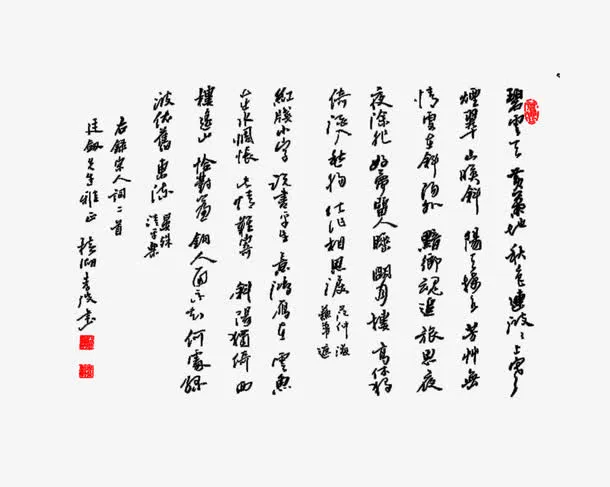 碧雲天 黄葉地 秋色連波々上寒
煙翠 山映斜陽天接水 芳艸無
情 更在斜陽外 黯鄉魂 追旅思 夜
夜除非 好夢留人睡 明月樓高休獨
倚 酒入愁腸 化作相思淚
范仲淹
蘇幕遮
紅牋小字 說盡平生意 鴻雁在雲魚
在水 惆悵此情難寄 斜陽獨倚西
樓 遙山恰對簾鈎 人面不知何處 綠
波依舊東流
晏殊
清平樂
右錄宋人詞二首
先生雅正 書